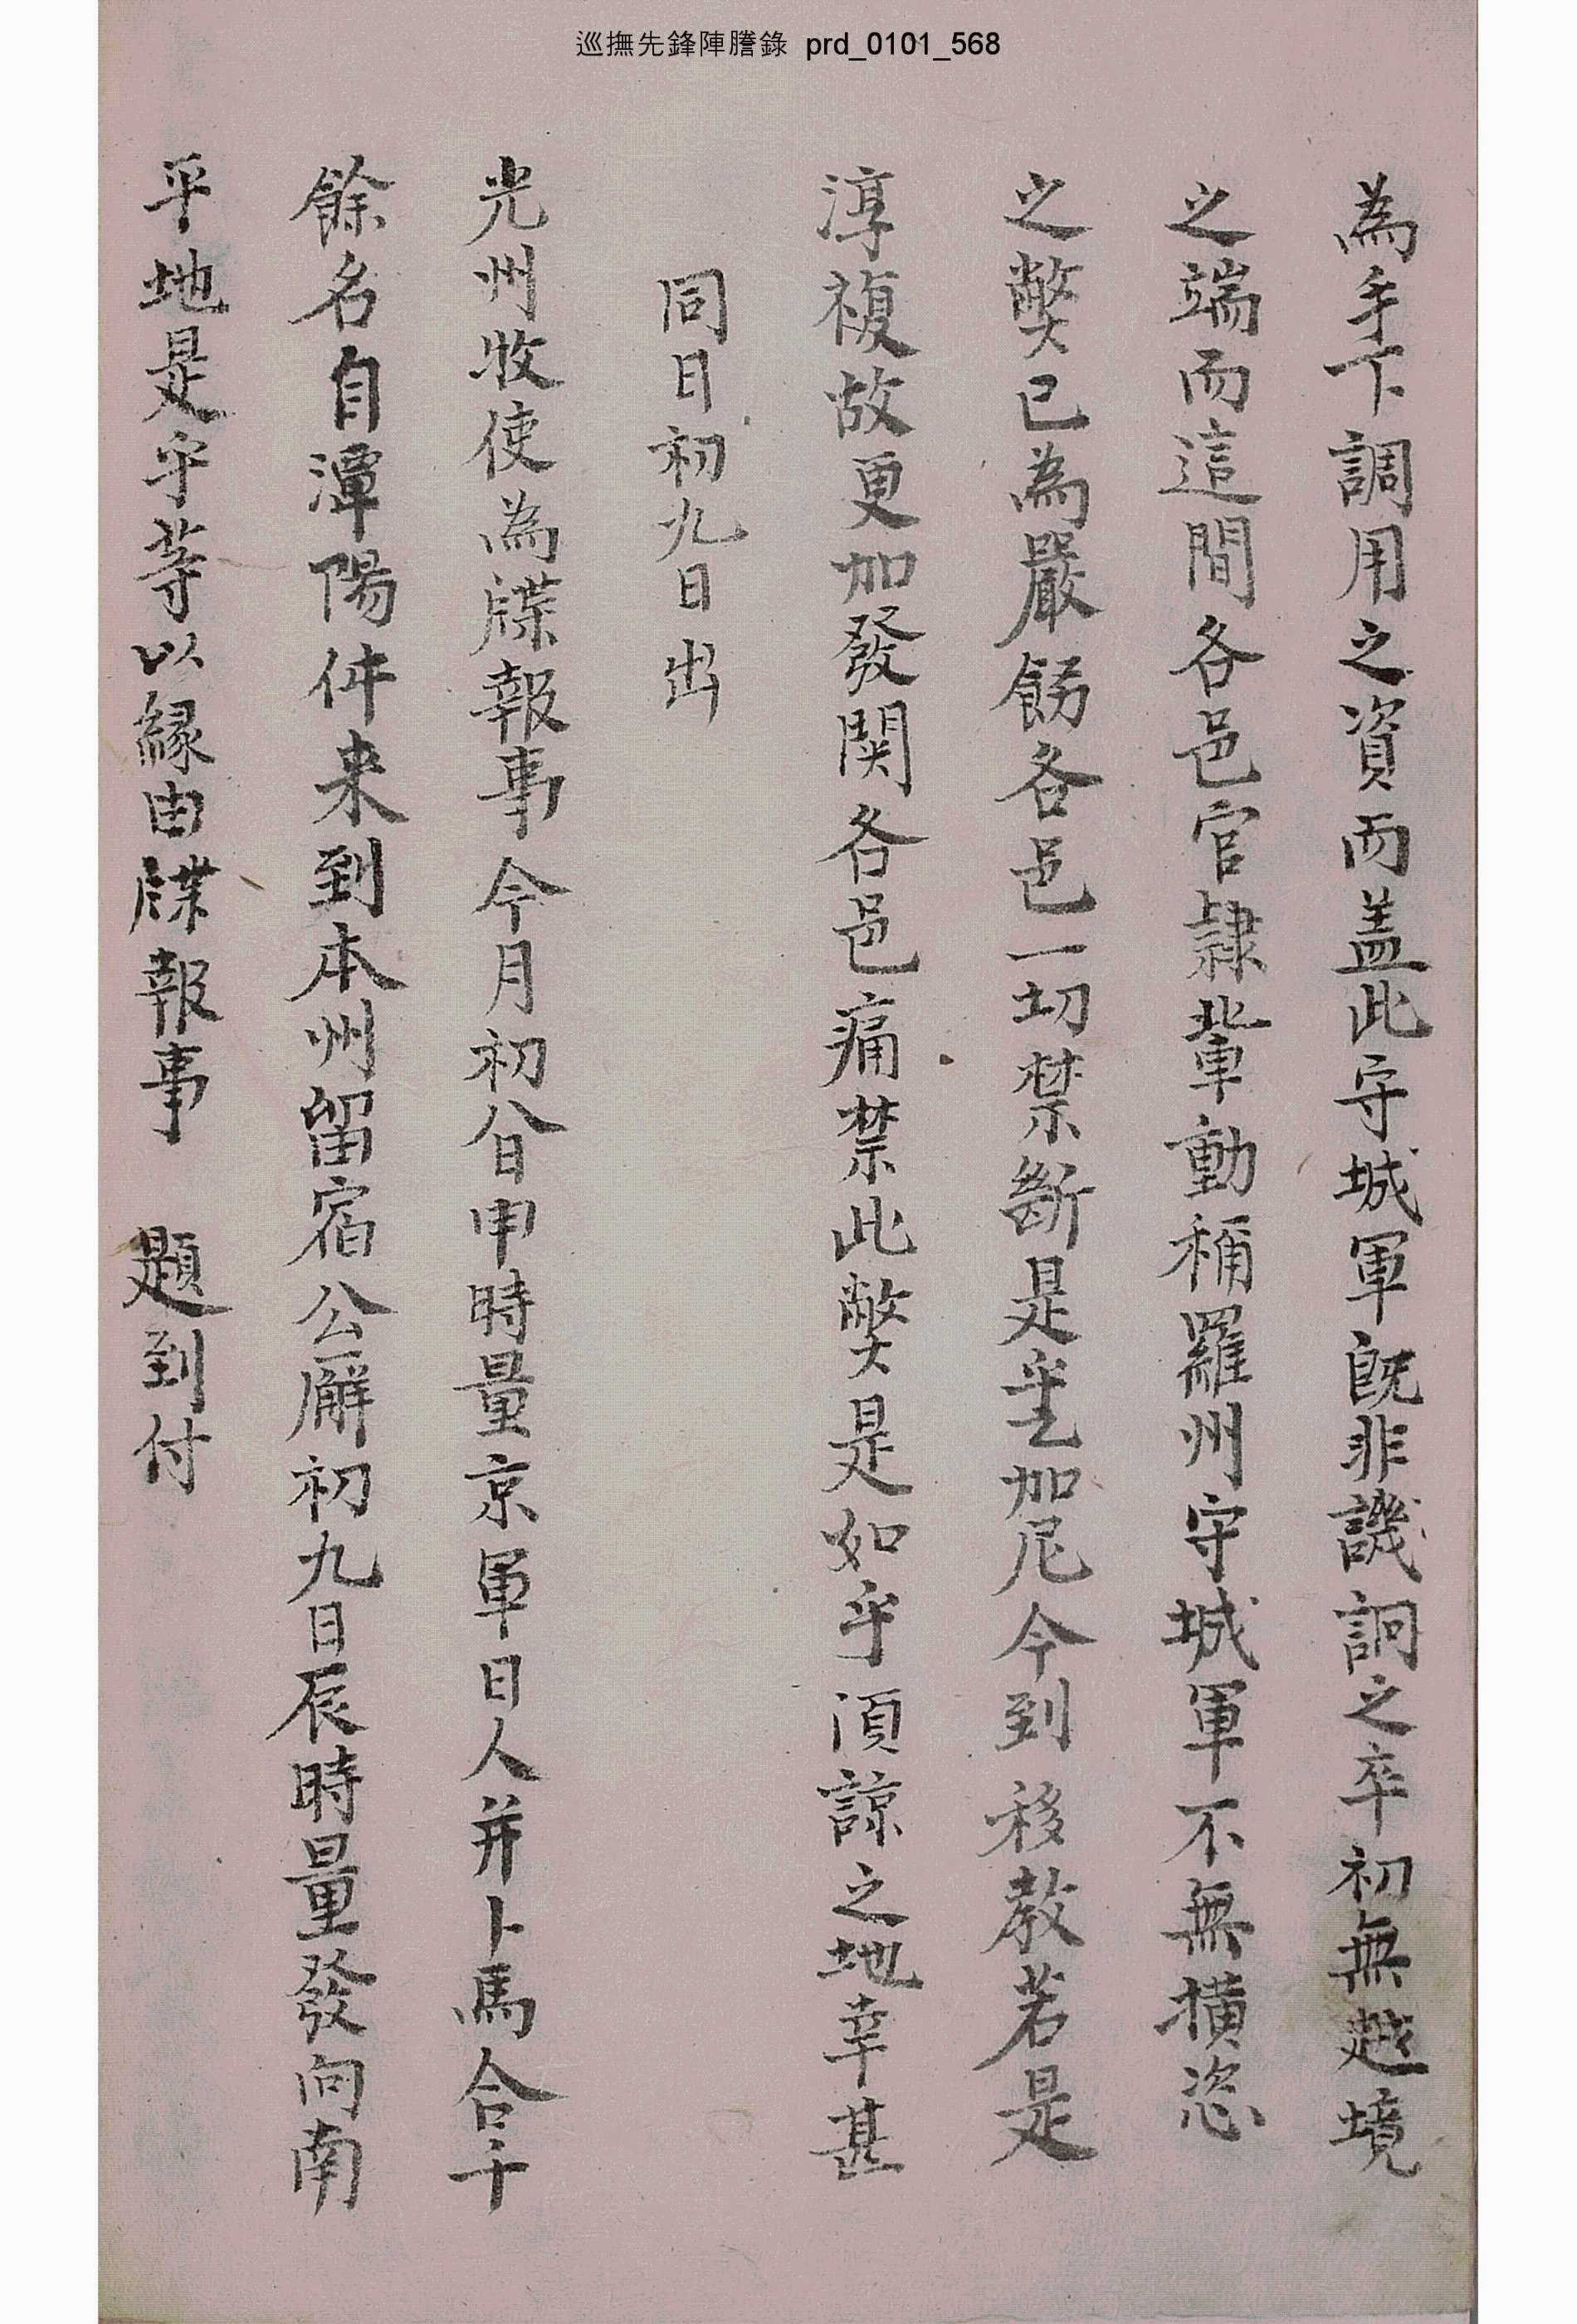 巡撫先鋒陣謄錄 prd_0101_568
為手下調用之資而盖此守城軍旣非譏詗之卒初無越境
之端而這間各邑官隷軰動稱羅州守城軍不無橫恣
之弊已為嚴飭各邑一切禁斷是乎乙加尼今到移教若是
淳複故更加發関各邑痛禁此弊是如乎須諒之地幸甚
同日初九日出
光州牧使為牒報事今月初八日申時量京軍日人并卜馬合千
餘名自潭陽件来到本州留宿公廨初九日辰時量發向南
平地是乎等以緣由牒報事 題到付